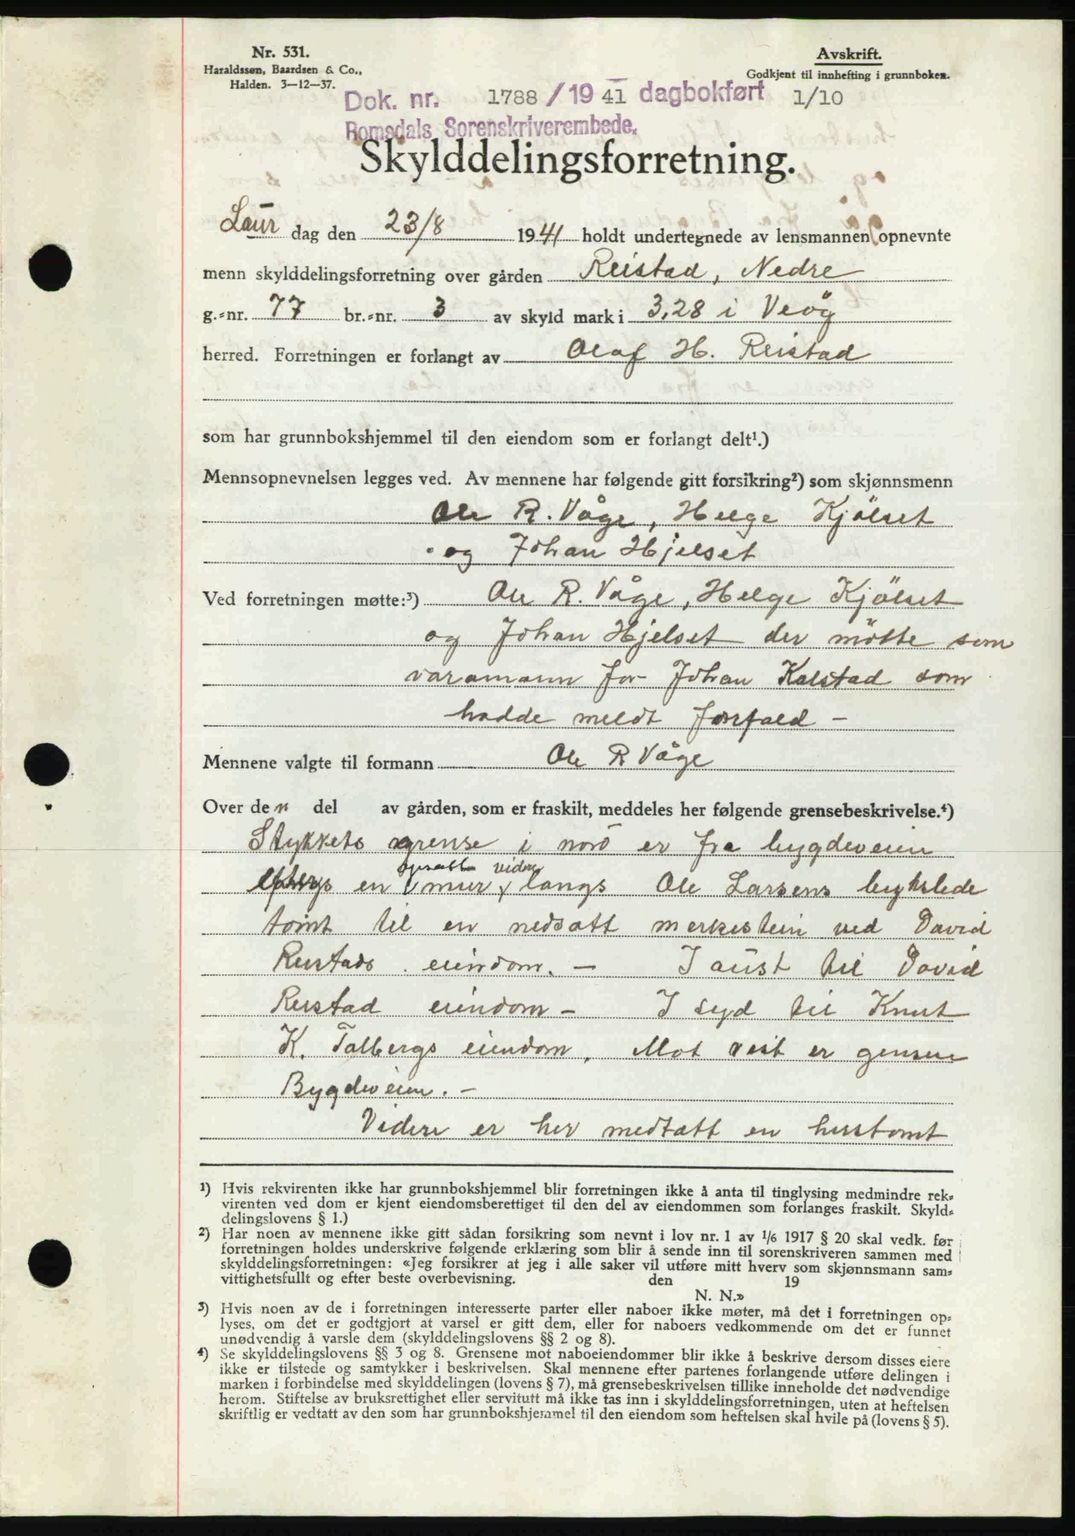 Nr. 531.
Haraldssen, Baardsen & Co.,
Halden. 3—12—37.
Avskrift.
Godkjent til innhefting i grunnboken.
Dok. nr. 1788 / 19 41 dagbokført 1/10
Romsdals Sorenskriverembede.
Skylddelingsforretning.
Laur dag den 23/8 1941 holdt undertegnede av lensmannen opnevnte
menn skylddelingsforretning over gården Reistad, Nedre
g.-nr. 77 br.-nr. 3 av skyld mark i 3,28 i Veöy
herred. Forretningen er forlangt av Olaf H. Reistad
som har grunnbokshjemmel til den eiendom som er forlangt delt¹.)
Mennsopnevnelsen legges ved. Av mennene har følgende gitt forsikring²) som skjønnsmenn
Ole R. Våge, Helge Kjölset
og Johan Hjelset
Ved forretningen møtte:³) Ole R. Våge, Helge Kjölset
og Johan Hjelset der mötte som
varamann for Johan Kalstad som
hadde meldt forfald —
Mennene valgte til formann Ole R Våge
Over den del av gården, som er fraskilt, meddeles her følgende grensebeskrivelse.⁴)
Stykkets grense i nord er fra bygdeveien
opsatt vidre
en mur langs Ole Larsens bykslede
tomt til en nedsatt merkestein ved David
Reistads eiendom. — I aust til David
Reistad eiendom — I syd til Knut
K. Talbergs eiendom. Mot vest er gensene
Bygdeveien. —
Videre er her medtatt en hustomt
¹) Hvis rekvirenten ikke har grunnbokshjemmel blir forretningen ikke å anta til tinglysing medmindre rek-
virenten ved dom er kjent eiendomsberettiget til den del av eiendommen som forlanges fraskilt. Skyld-
delingslovens § 1.)
²) Har noen av mennene ikke gitt sådan forsikring som nevnt i lov nr. 1 av 1/6 1917 § 20 skal vedk. før
forretningen holdes underskrive følgende erklæring som blir å sende inn til sorenskriveren sammen med
skylddelingsforretningen: «Jeg forsikrer at jeg i alle saker vil utføre mitt hverv som skjønnsmann sam-
vittighetsfullt og efter beste overbevisning. den 19
N. N.»
³) Hvis noen av de i forretningen interesserte parter eller naboer ikke møter, må det i forretningen op-
lyses, om det er godtgjort at varsel er gitt dem, eller for naboers vedkommende om det er funnet
unødvendig å varsle dem (skylddelingslovens §§ 2 og 8).
⁴) Se skylddelingslovens §§ 3 og 8. Grensene mot naboeiendommer blir ikke å beskrive dersom disses eiere
ikke er tilstede og samtykker i beskrivelsen. Skal mennene efter partenes forlangende utføre delingen i
marken i forbindelse med skylddelingen (lovens § 7), må grensebeskrivelsen tillike inneholde det nødvendige
herom. Stiftelse av bruksrettighet eller servitutt må ikke tas inn i skylddelingsforretningen, uten at heftelsen
skriftlig er vedtatt av den som har grunnbokshjemmel til den eiendom som heftelsen skal hvile på (lovens § 5).